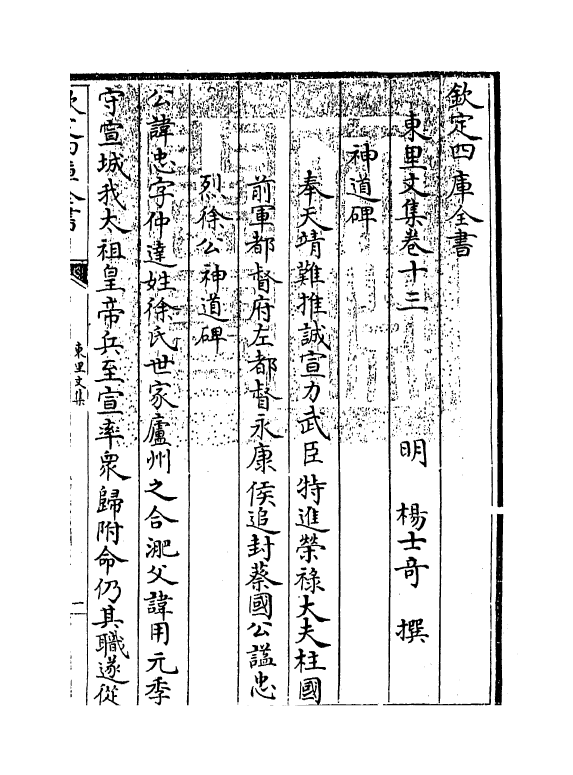 欽定四庫全書
東里文集卷十三
明 楊士奇 撰
神道碑
奉天靖難推誠宣力武臣特進榮祿大夫柱國
前軍都督府左都督永康侯追封蔡國公諡忠
烈徐公神道碑
公諱忠字仲達姓徐氏世家廬州之合淝父諱用元季
守宣城我太祖皇帝兵至宣率衆歸附命仍其職遂從
欽定四庫全書
東里文集